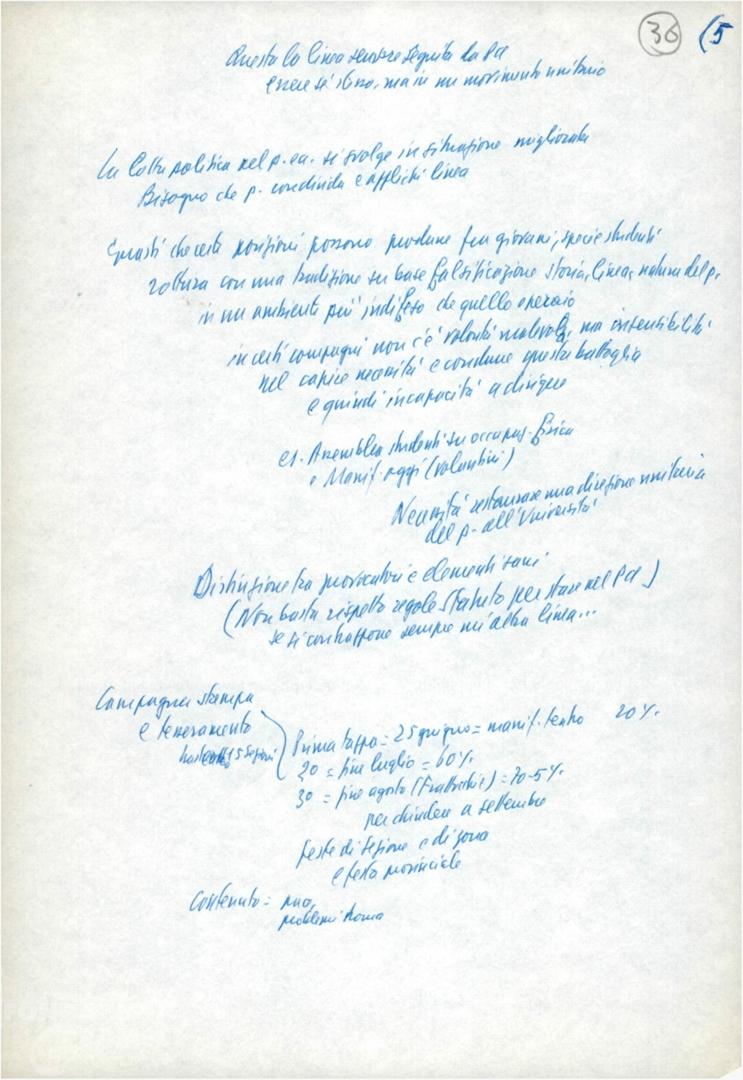 36 (5
Questa la linea sempre seguita da Pci
essere sé stesso, ma in un movimento unitario
La lotta politica nel p. si svolge in situazione migliorata
Bisogno che p. condivida e applichi linea
Guasti che certi posizioni possono produrre fra giovani, specie studenti
rottura con una tradizione su base falsificazione storia, linea, natura del p.
in un ambiente più indifeso di quello operaio
in certi compagni non c'è volontà malevola, ma insensibilità
nel capire necessità e condurre questa battaglia
e quindi incapacità a dirigere
es. Assemblea studenti su occupaz. fisica
e Manif. oggi (volantini)
Necessità restaurare una direzione unitaria
del p. all'Università
Distinzione tra provocatori e elementi sani
(Non basta rispetto regole Statuto per stare nel Pci)
se si contrappone sempre un'altra linea...
Campagna stampa
e tesseramento
15 sezioni
Prima tappa = 25 giugno = manif. teatro 20%
20 = fine luglio = 60%
30 = fine agosto (Frattocchie) = 70-5%
per chiudere a settembre
feste di sezione e di zona
e festa provinciale
Contenuto =
problemi Roma